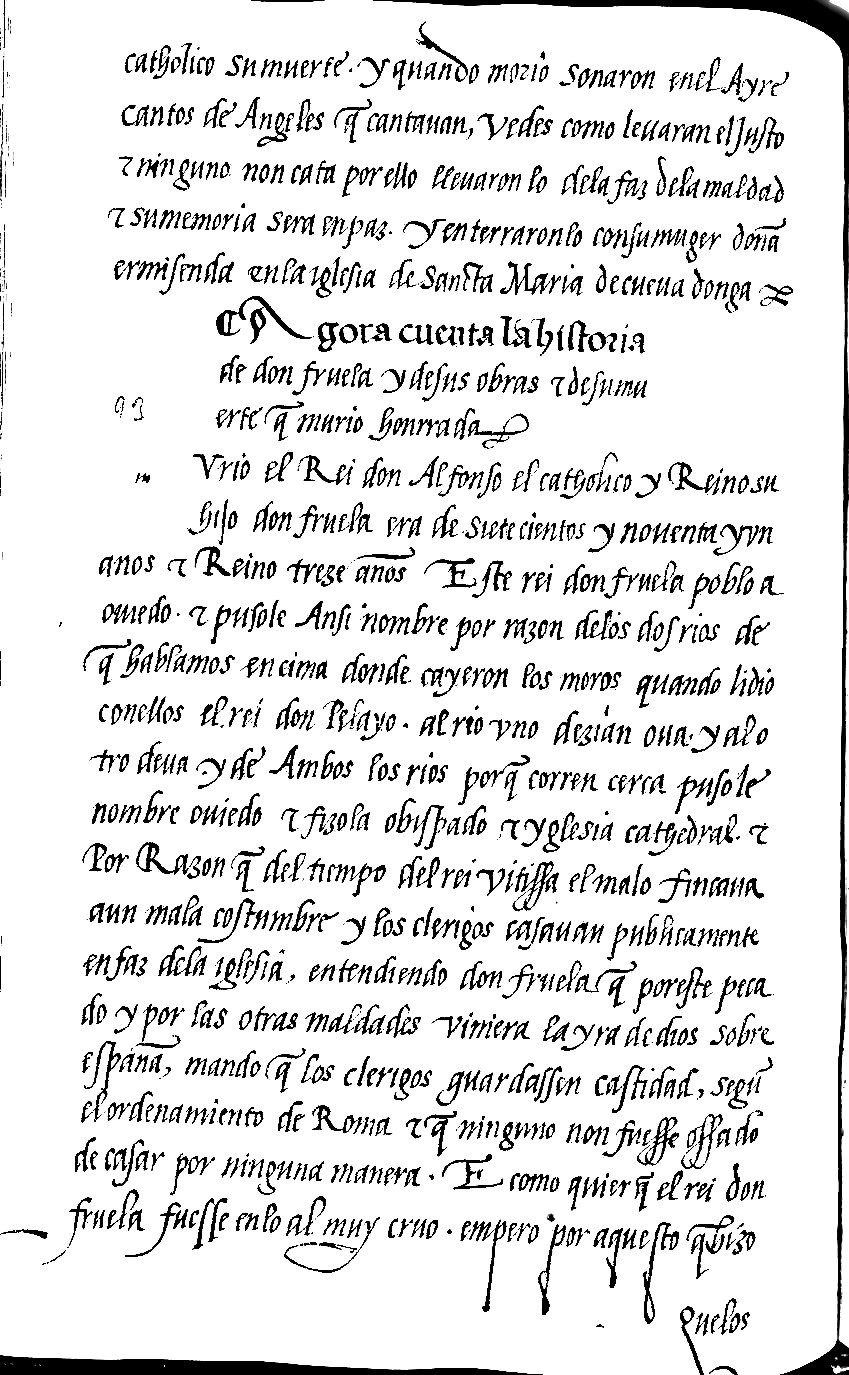 catholico su muerte. y quando morio sonaron enel Ayre
cantos de Angeles q̄ cantauan, Vedes como leuaran el Justo
⁊ ninguno non cata por ello lleuaron lo dela faz dela maldad
⁊ su memoria sera en paz. y enterraronlo con su muger doña
ermisenda en la iglesia de Sancta Maria de cueua donga
Agora cuenta la historia
de don fruela y de sus obras ⁊ de su mu
erte q̄ murio honrrada
93
m Vrio el Rei don Alfonso el catholico y Reino su
hijo don fruela era de siete cientos y nouenta y vn
anos ⁊ Reino treze años Este rei don fruela poblo a
ouiedo. ⁊ pusole Ansi nombre por razon delos dos rios de
q̄ hablamos encima donde cayeron los moros quando lidio
conellos el rei don Pelayo. al rio vno dezian oua. y al o
tro deua y de Ambos los rios porq̄ corren cerca pusole
nombre ouiedo ⁊ fizola obispado ⁊ yglesia cathedral. ⁊
Por Razon q̄ del tiempo del rei vitissa el malo fincaua
aun mala costumbre y los clerigos casauan publicamente
enfaz dela iglesia, entendiendo don fruela q̄ por este peca
do y por las otras maldades viniera la yra de dios sobre
españa, mando q̄ los clerigos guardassen castidad, segū
el ordenamiento de Roma ⁊ q̄ ninguno non fuesse ossado
de casar por ninguna manera. E como quier q̄ el rei don
fruela fuesse enlo al muy cruo. empero por aquesto q̄ hizo
quelos